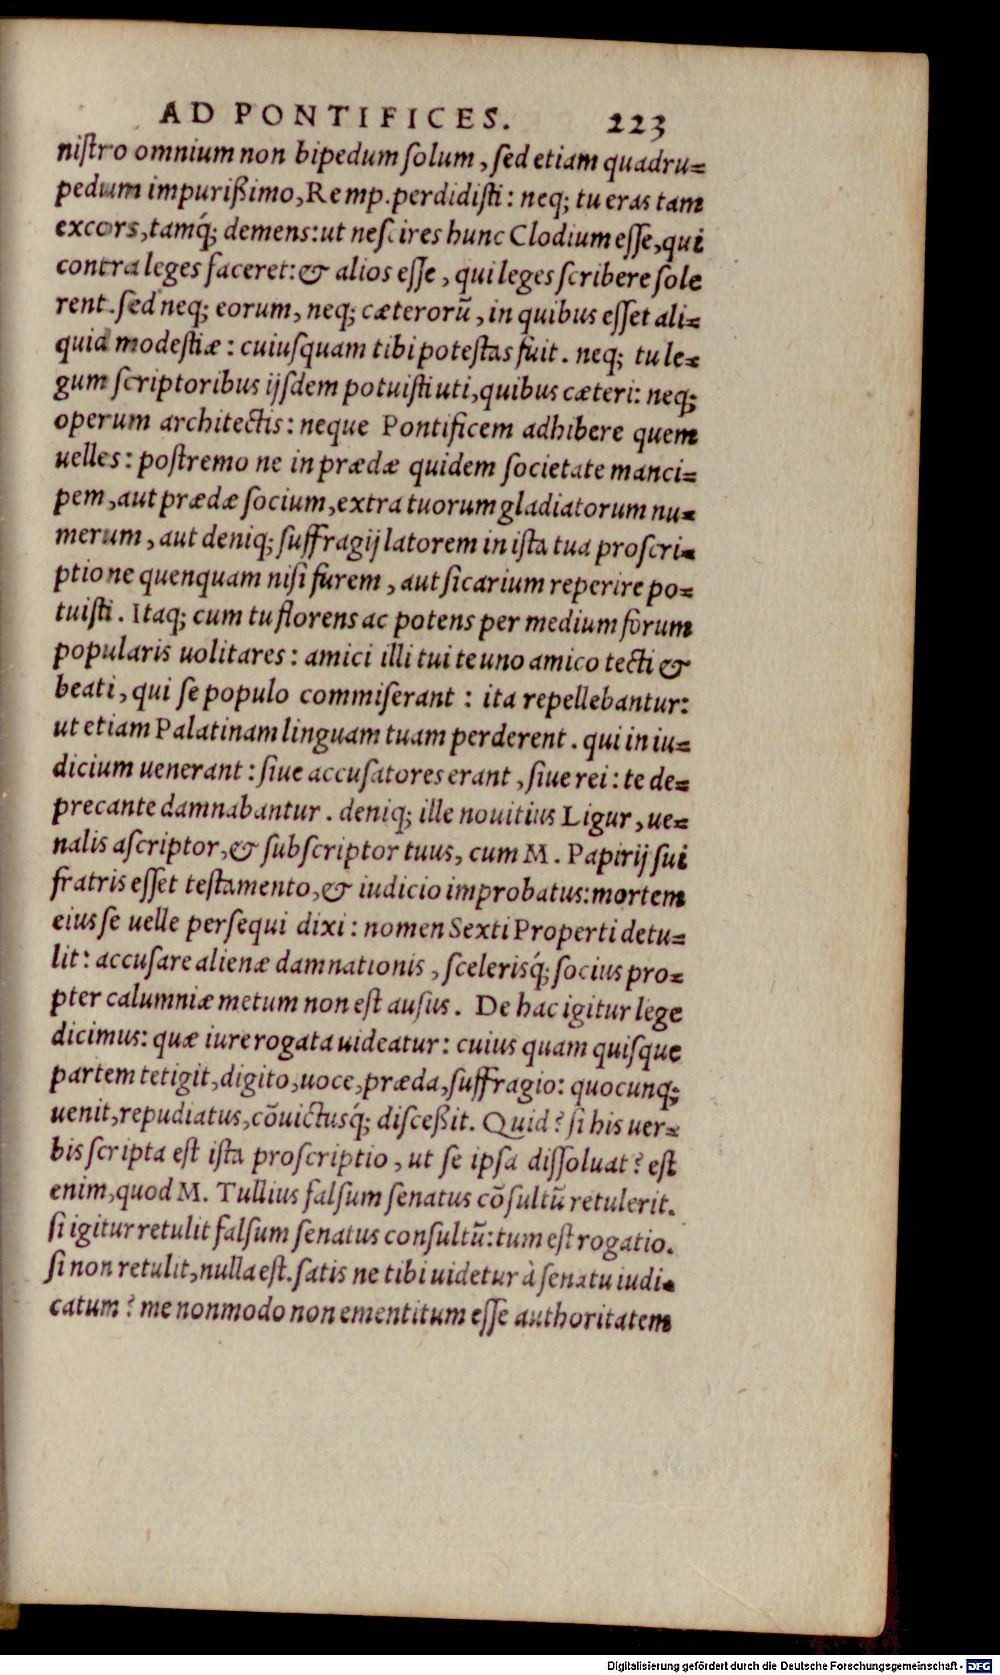 AD PONTIFICES. 223
niſtro omnium non bipedum ſolum, ſed etiam quadru⸗
pedum impurißimo, Remp. perdidiſti: neq; tu eras tam
excors, tamq́; demens: ut neſcires hunc Clodium eſſe, qui
contra leges faceret: & alios eſſe, qui leges ſcribere ſole
rent. ſed neq; eorum, neq; cæterorũ, in quibus eſſet ali⸗
quid modeſtiæ: cuiuſquam tibi poteſtas fuit. neq; tu le⸗
gum ſcriptoribus ijſdem potuiſti uti, quibus cæteri: neq;
operum architectis: neque Pontificem adhibere quem
uelles: poſtremo ne in prædæ quidem ſocietate manci⸗
pem, aut prædæ ſocium, extra tuorum gladiatorum nu⸗
merum, aut deniq; ſuffragij latorem in iſta tua proſcri⸗
ptione quenquam niſi furem, aut ſicarium reperire po⸗
tuiſti. Itaq; cum tu florens ac potens per medium forum
popularis uolitares: amici illi tui te uno amico tecti &
beati, qui ſe populo commiſerant: ita repellebantur:
ut etiam Palatinam linguam tuam perderent. qui in iu⸗
dicium uenerant: ſiue accuſatores erant, ſiue rei: te de⸗
precante damnabantur. deniq; ille nouitius Ligur, ue⸗
nalis aſcriptor, & ſubſcriptor tuus, cum M. Papirij ſui
fratris eſſet teſtamento, & iudicio improbatus: mortem
eius ſe uelle perſequi dixi: nomen Sexti Properti detu⸗
lit: accuſare alienæ damnationis, ſceleriſq́; ſocius pro⸗
pter calumniæ metum non eſt auſus. De hac igitur lege
dicimus: quæ iure rogata uideatur: cuius quam quiſque
partem tetigit, digito, uoce, præda, ſuffragio: quocunq;
uenit, repudiatus, cõuictuſq́; diſceßit. Quid? ſi his uer⸗
bis ſcripta eſt iſta proſcriptio, ut ſe ipſa diſſoluat? eſt
enim, quod M. Tullius falſum ſenatus cõſultũ retulerit.
ſi igitur retulit falſum ſenatus conſultũ: tum eſt rogatio.
ſi non retulit, nulla eſt. ſatis ne tibi uidetur à ſenatu iudi⸗
catum? me nonmodo non ementitum eſſe authoritatem
Digitalisierung gefördert durch die Deutsche Forschungsgemeinschaft - DFG